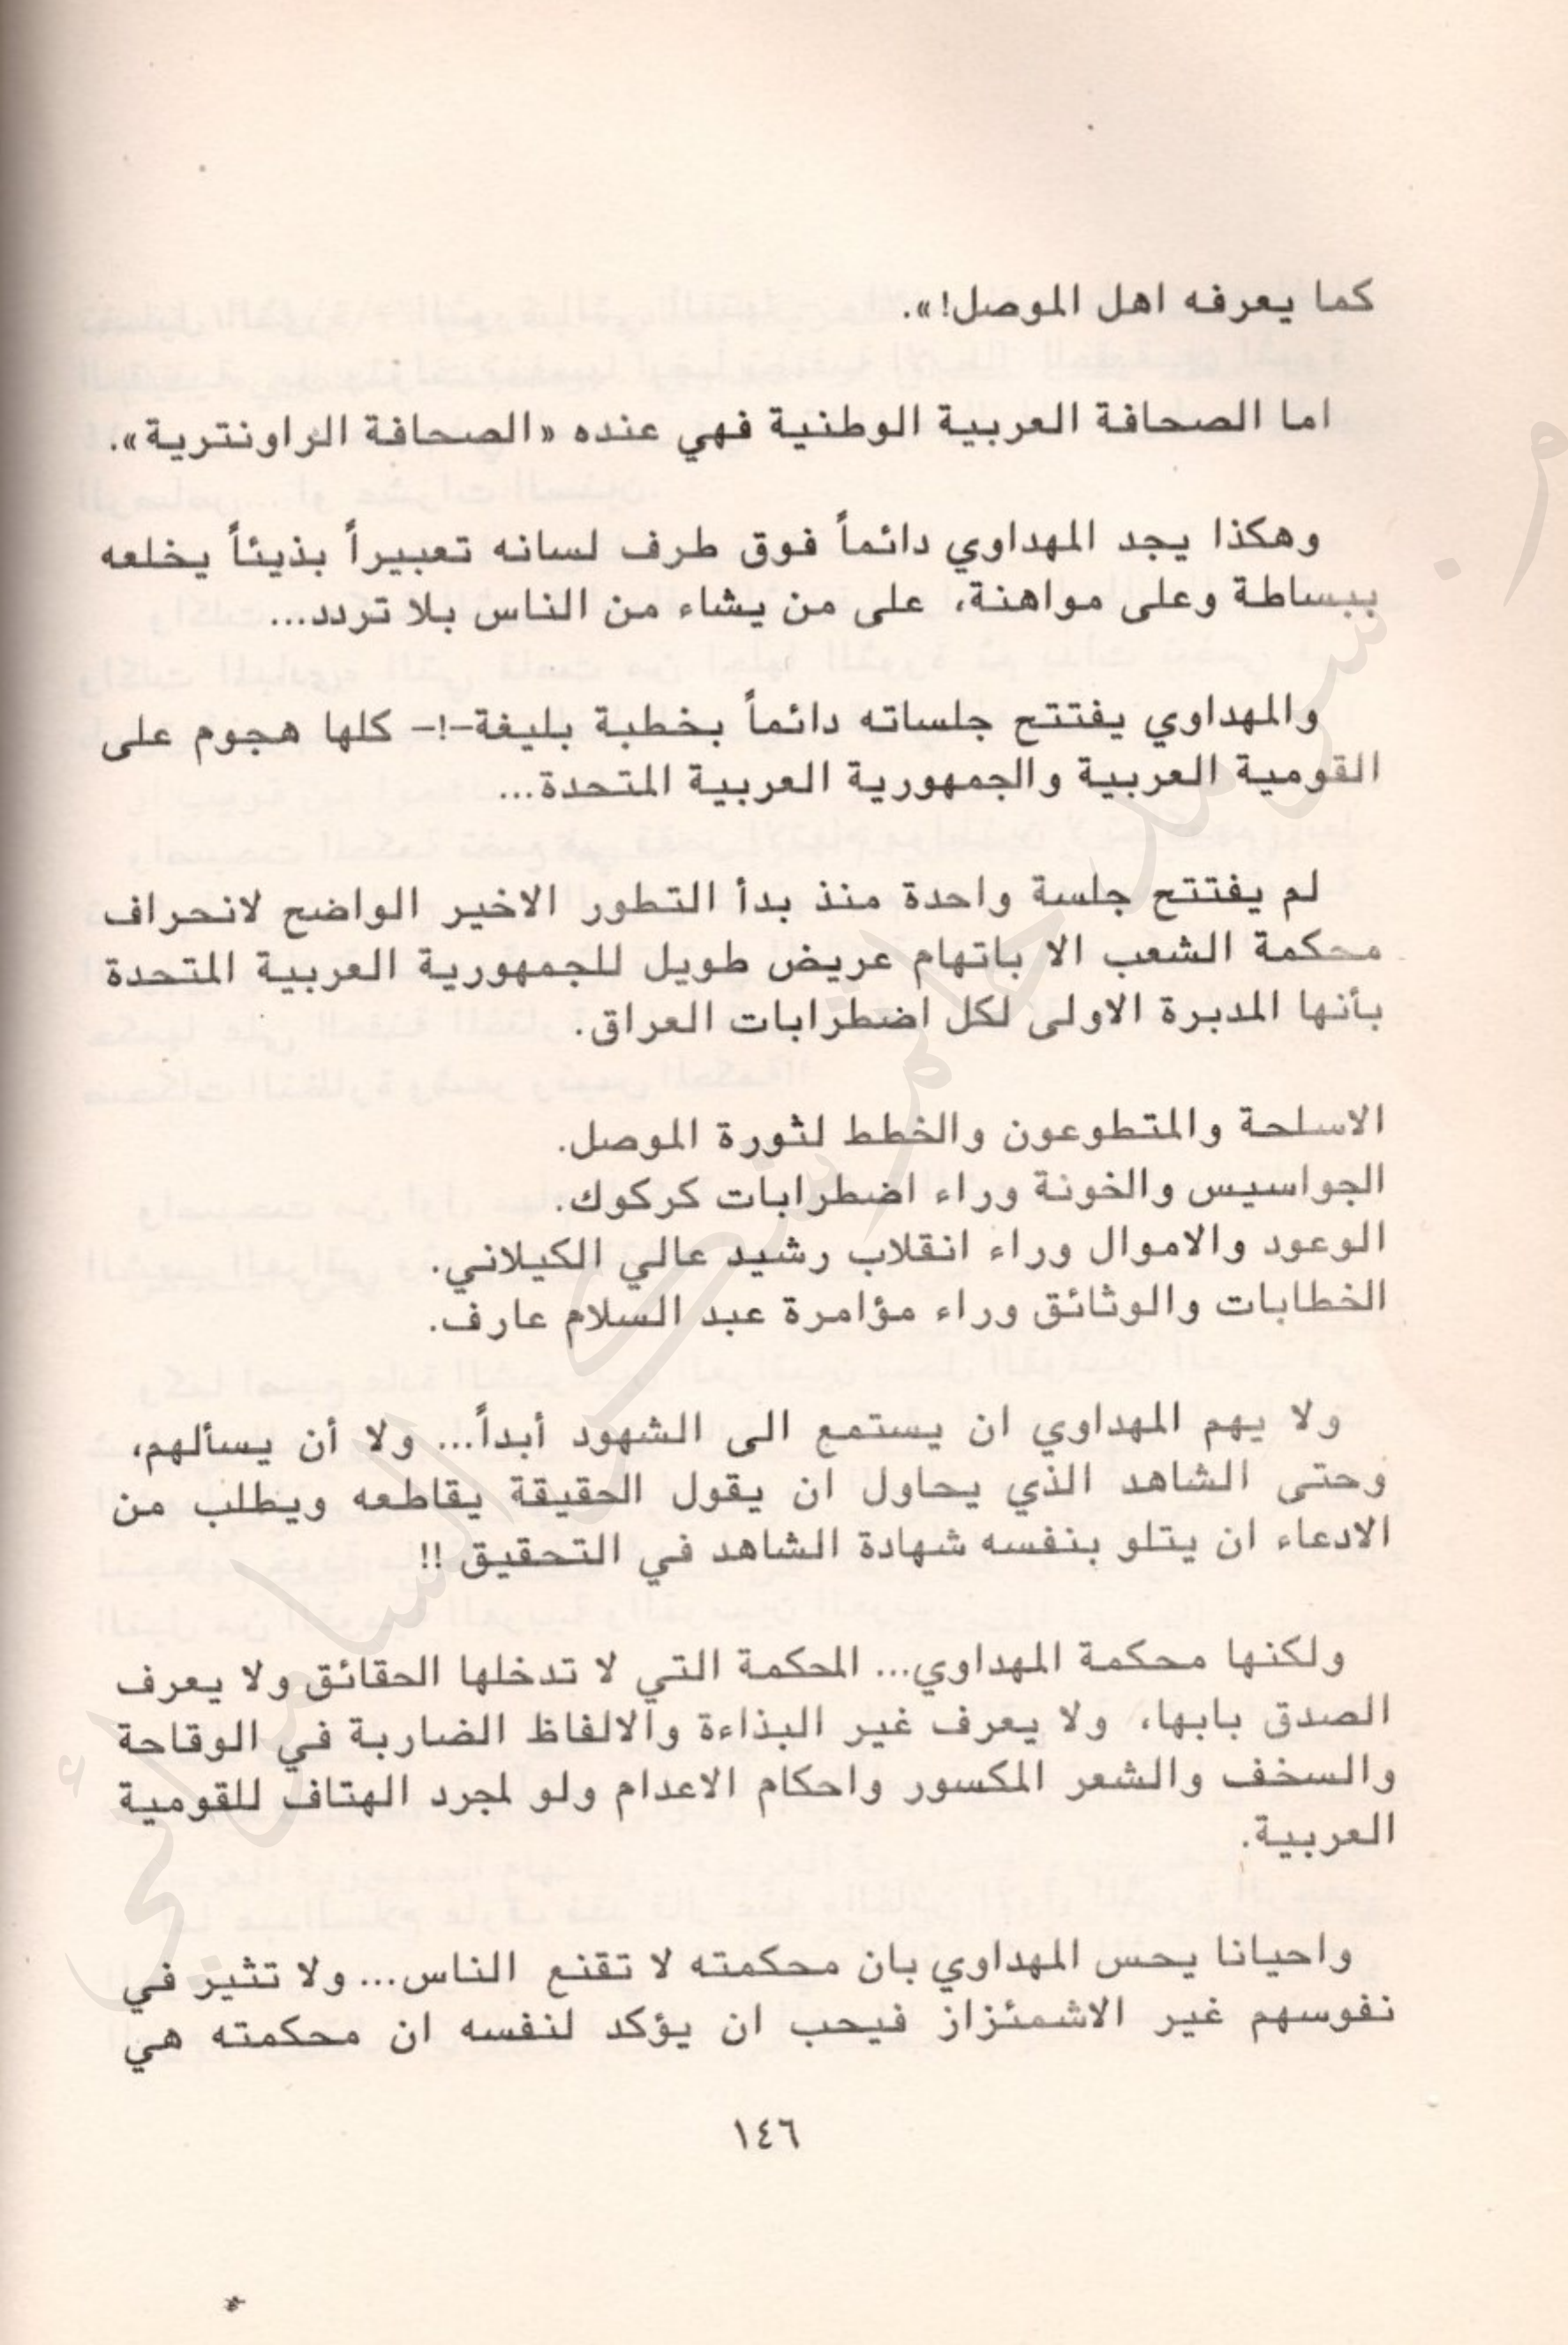 كما يعرفه اهل الموصل!».
اما الصحافة العربية الوطنية فهي عنده «الصحافة الراونترية».
وهكذا يجد المهداوي دائماً فوق طرف لسانه تعبيراً بذيئاً يخلعه
ببساطة وعلى مواهنة، على من يشاء من الناس بلا تردد...
والمهداوي يفتتح جلساته دائماً بخطبة بليغة-!- كلها هجوم على
القومية العربية والجمهورية العربية المتحدة...
لم يفتتح جلسة واحدة منذ بدأ التطور الاخير الواضح لانحراف
محكمة الشعب الا باتهام عريض طويل للجمهورية العربية المتحدة
بأنها المدبرة الاولى لكل اضطرابات العراق.
الاسلحة والمتطوعون والخطط لثورة الموصل.
الجواسيس والخونة وراء اضطرابات كركوك.
الوعود والاموال وراء انقلاب رشيد عالي الكيلاني.
الخطابات والوثائق وراء مؤامرة عبد السلام عارف.
ولا يهم المهداوي ان يستمع الى الشهود أبداً... ولا أن يسألهم،
وحتى الشاهد الذي يحاول ان يقول الحقيقة يقاطعه ويطلب من
الادعاء ان يتلو بنفسه شهادة الشاهد في التحقيق !!
ولكنها محكمة المهداوي... المحكمة التي لا تدخلها الحقائق ولا يعرف
الصدق بابها، ولا يعرف غير البذاءة والالفاظ الضاربة في الوقاحة
والسخف والشعر المكسور واحكام الاعدام ولو لمجرد الهتاف للقومية
العربية.
واحيانا يحس المهداوي بان محكمته لا تقنع الناس... ولا تثير في
نفوسهم غير الاشمئزاز فيحب ان يؤكد لنفسه ان محكمته هي
١٤٦